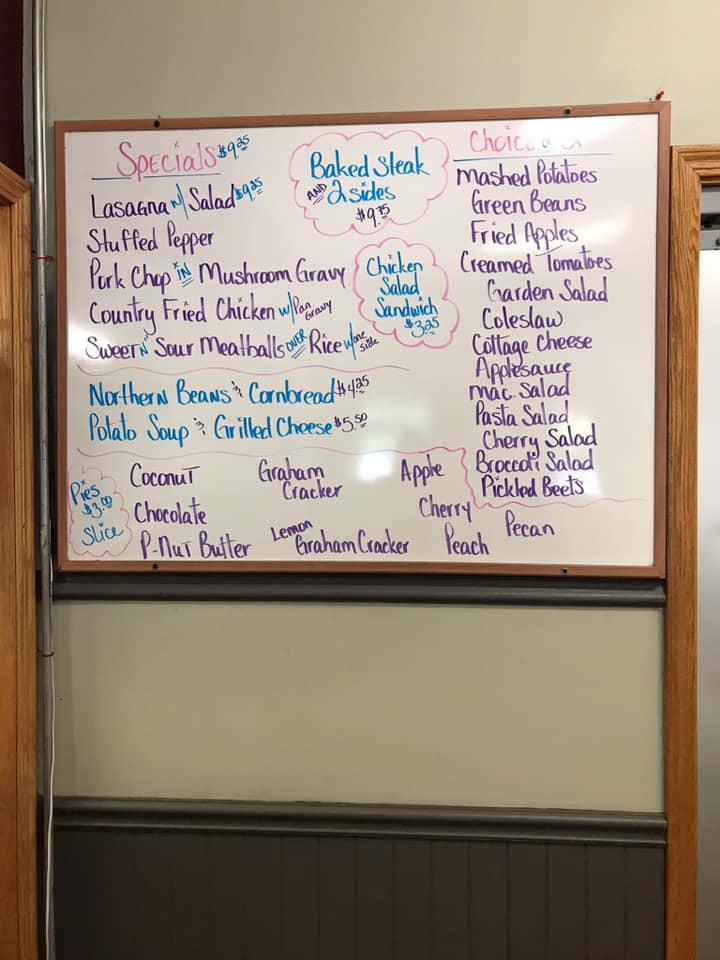 Specials $9.25
Lasagna w/ Salad $9.25
Stuffed Pepper
Pork Chop in Mushroom Gravy
Country Fried Chicken w/ Pan Gravy
Sweet n Sour Meatballs over Rice w/ one side
Baked Steak
and 2 sides
$9.75
Chicken
Salad
Sandwich
$3.25
Northern Beans & Cornbread $4.25
Potato Soup & Grilled Cheese $5.50
Mashed Potatoes
Green Beans
Fried Apples
Creamed Tomatoes
Garden Salad
Coleslaw
Cottage Cheese
Applesauce
Mac. Salad
Pasta Salad
Cherry Salad
Broccoli Salad
Pickled Beets
Pies
$3.00
Slice
Coconut
Chocolate
P-Nut Butter
Graham
Cracker
Lemon
Graham Cracker
Apple
Cherry
Peach
Pecan